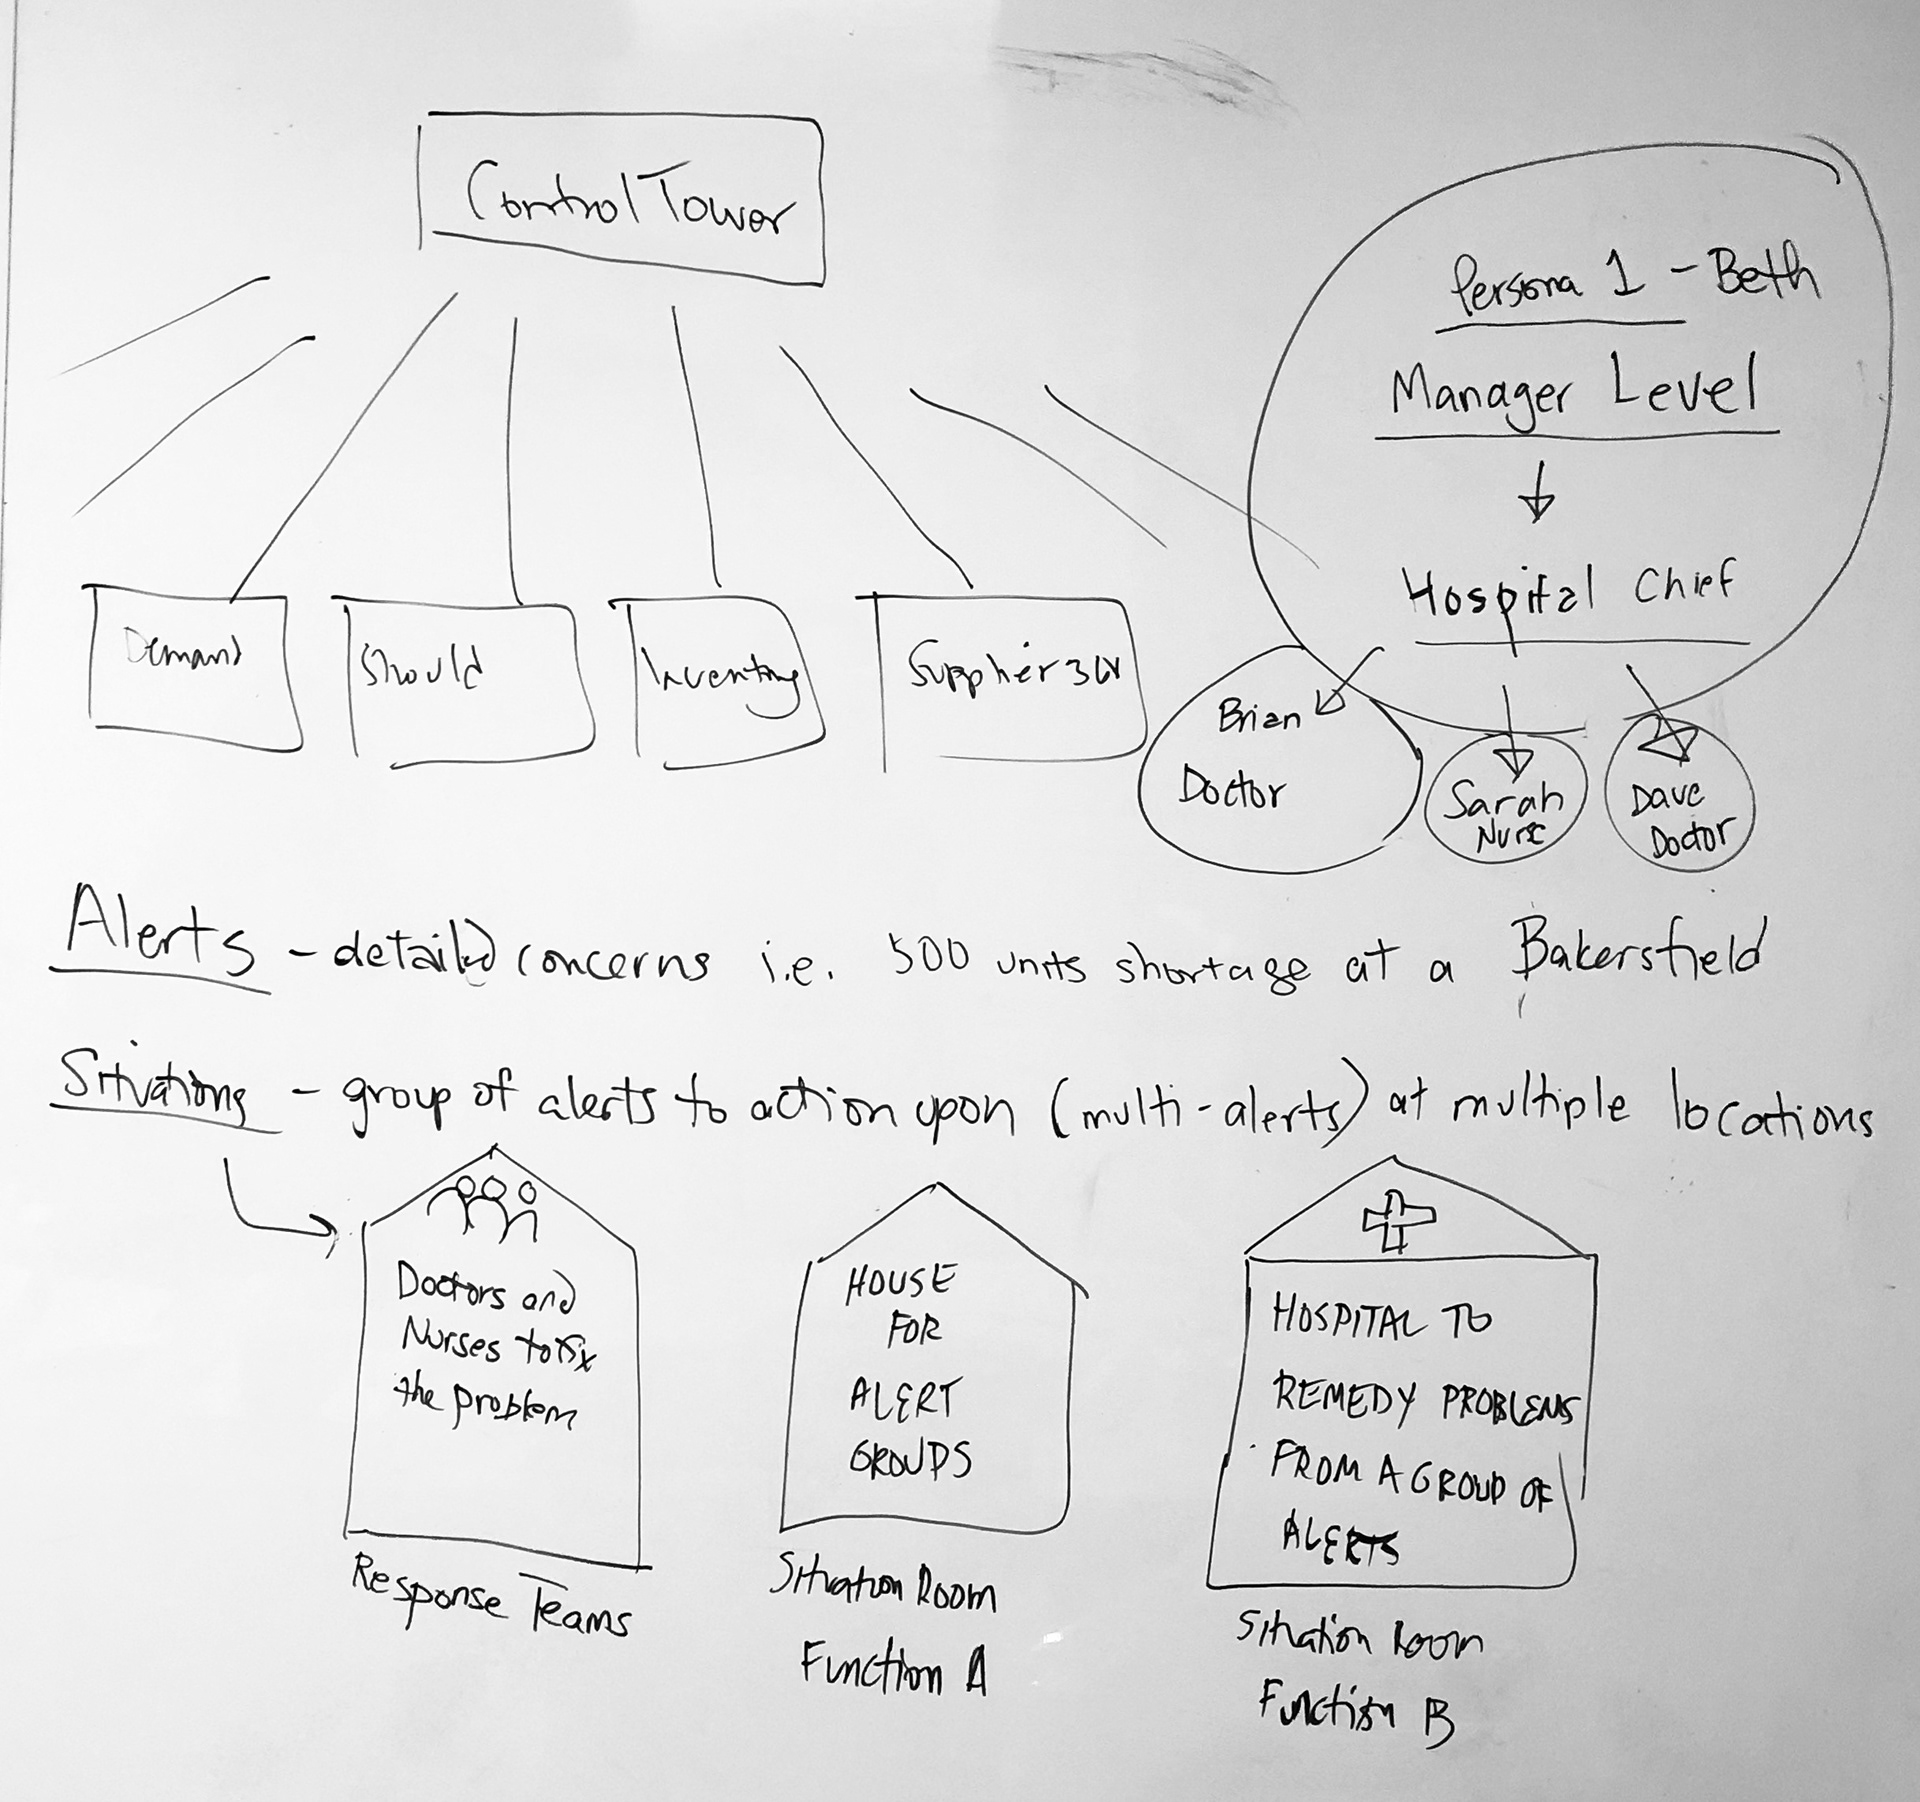 Control Tower
Persona 1 - Beth
Manager Level
Hospital Chief
Demand
Should
Inventory
Supplier
Brian
Doctor
Sarah
Nurse
Dave
Doctor
Alerts - detailed concerns i.e. 500 units shortage at a Bakersfield
Situations - group of alerts to action upon (multi-alerts) at multiple locations
Doctors and
Nurses to fix
the problem
Response Teams
HOUSE
FOR
ALERT
GROUPS
Situation Room
Function A
HOSPITAL TO
REMEDY PROBLEMS
FROM A GROUP OF
ALERTS
Situation Room
Function B